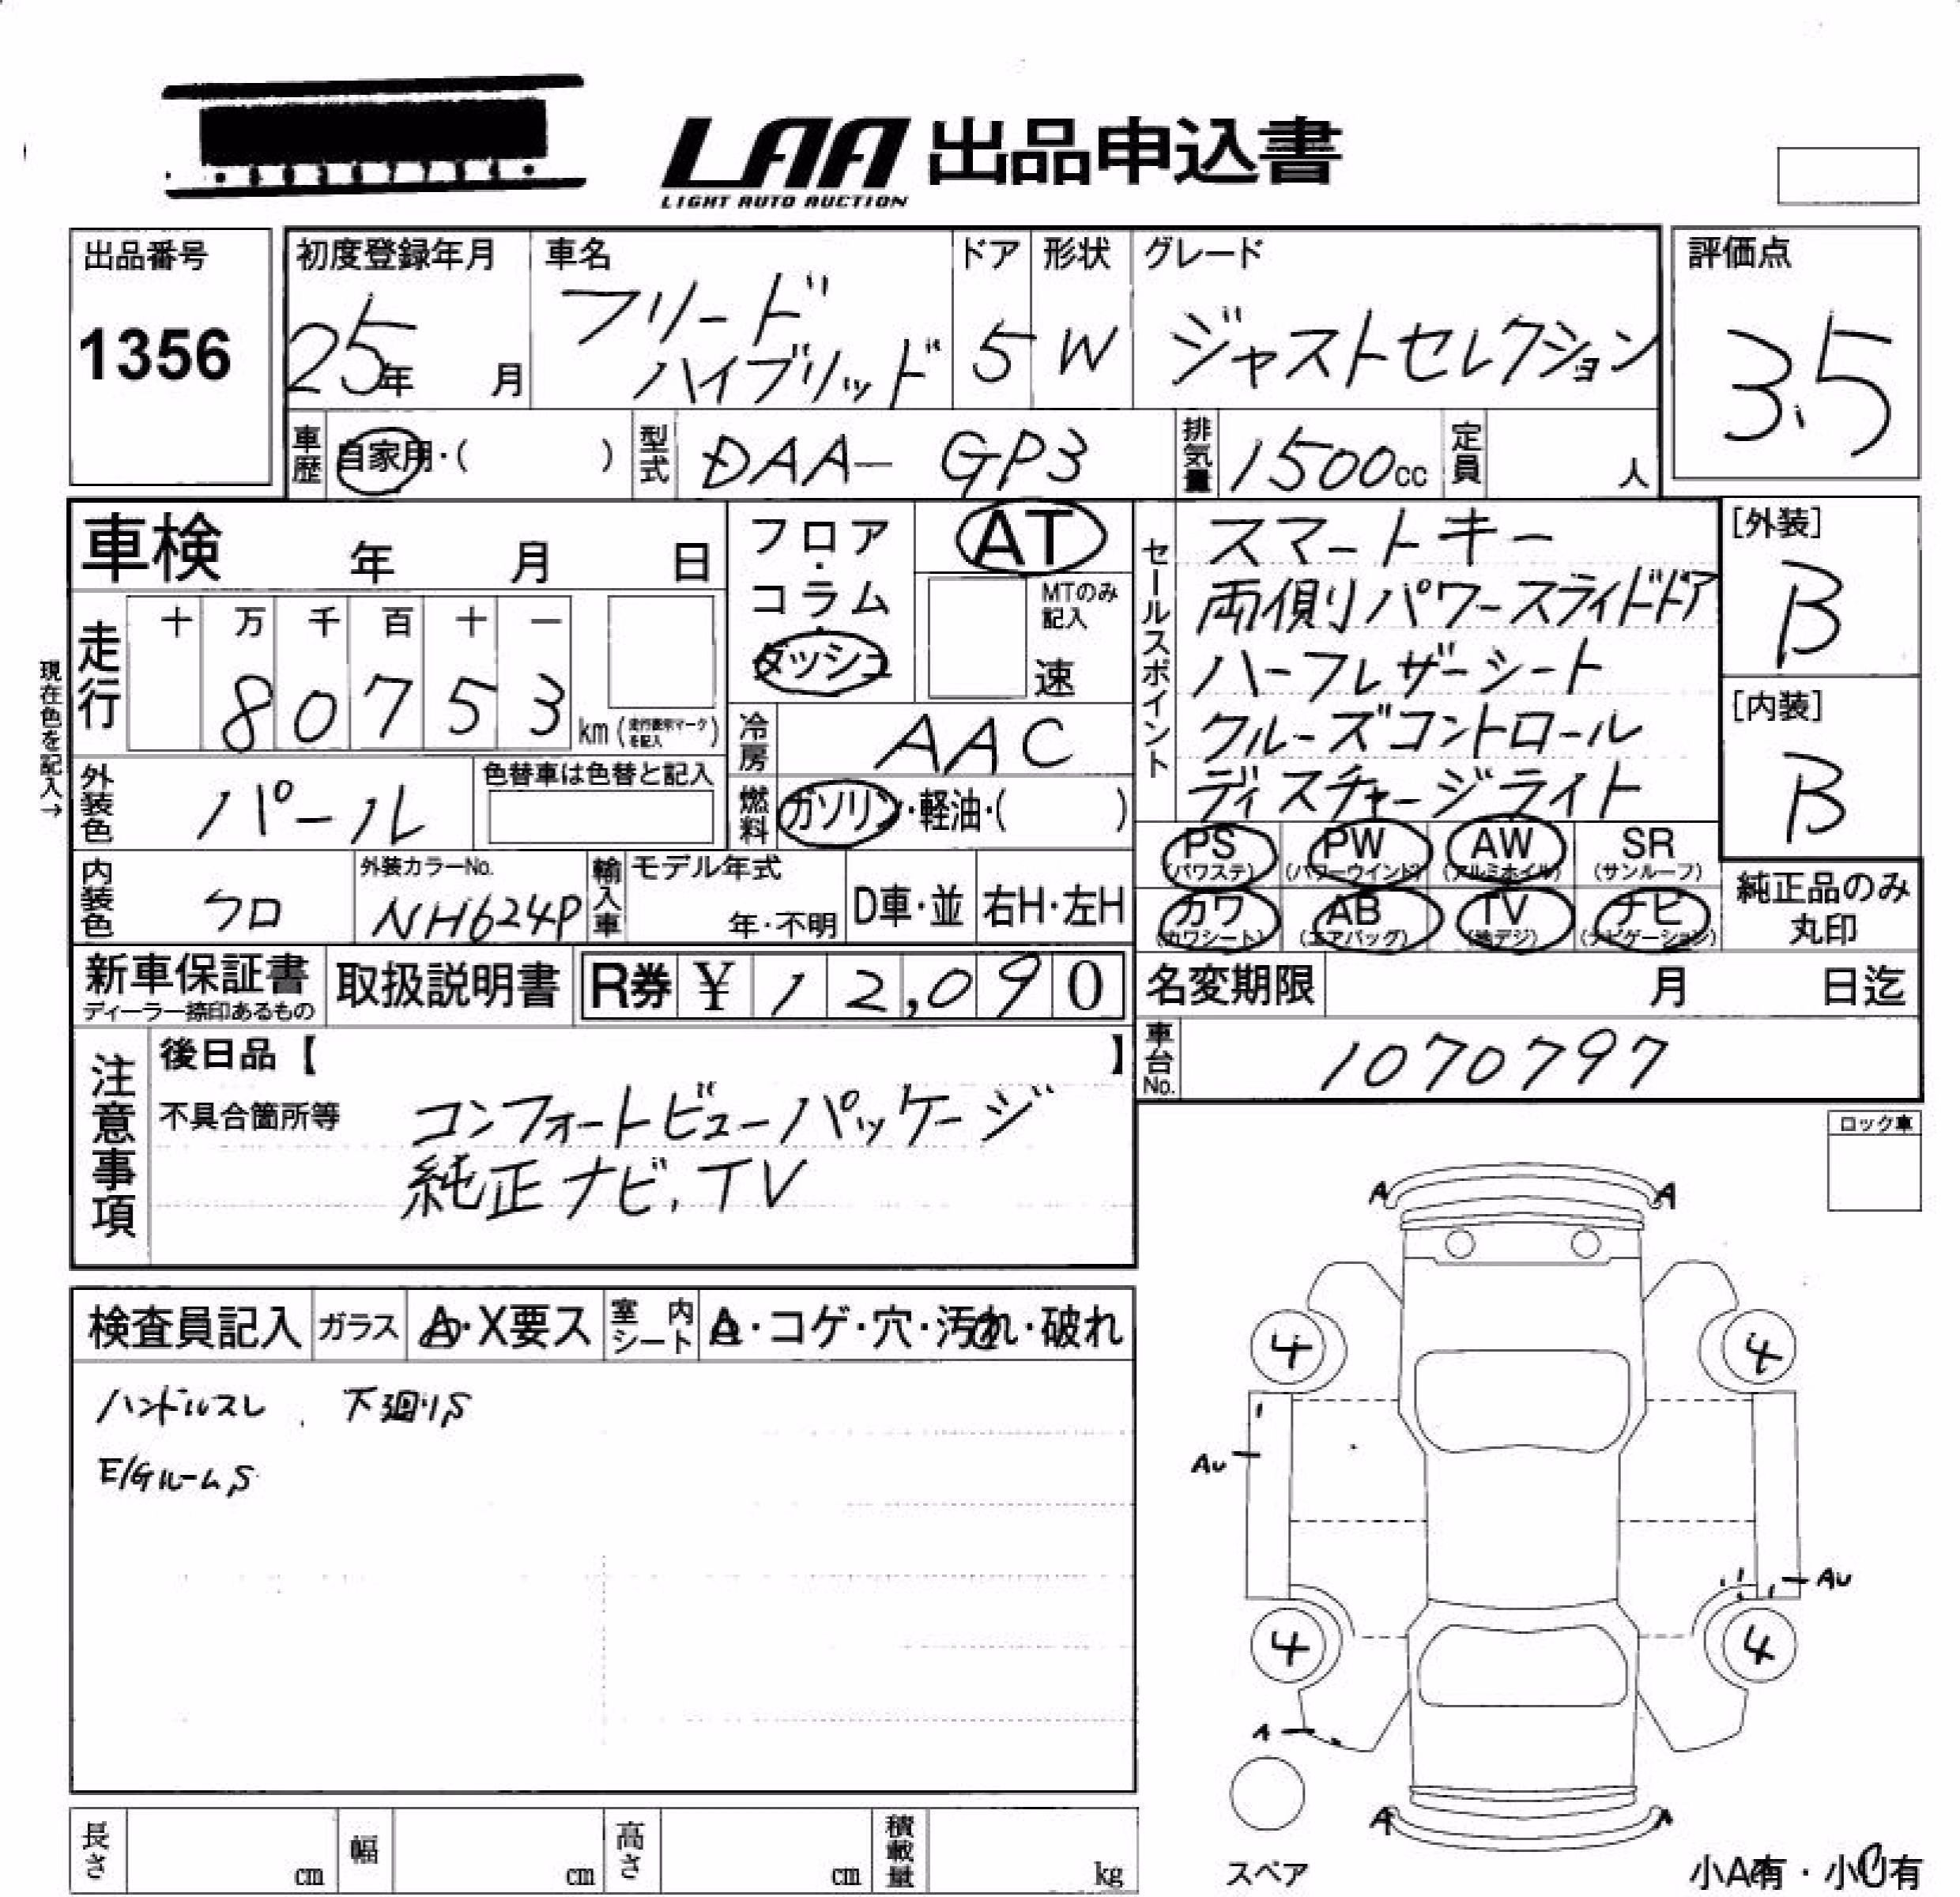 LAA 出品申込書
LIGHT AUTO AUCTION
出品番号
1356
初度登録年月
25年 月
車名
フリード
ハイブリッド
ドア
5
形状
W
グレード
ジャストセレクション
評価点
3.5
車歴
自家用・( )
型式
DAA- GP3
排気量
1500cc
定員
人
車検 年 月 日
フロア
・
コラム
・
ダッシュ
AT
MTのみ
記入
速
セールスポイント
スマートキー
両側リパワースライドドア
ハーフレザーシート
クルーズコントロール
ディスチャージライト
[外装]
B
[内装]
B
現在色を記入→
走行
十 万 千 百 十 一
8 0 7 5 3
km (走行表示マークを記入)
冷房
AAC
外装色
パール
色替車は色替と記入
燃料
ガソリン・軽油・( )
PS (パワステ)
PW (パワーウインド)
AW (アルミホイル)
SR (サンルーフ)
カワ (カワシート)
AB (エアバッグ)
TV (地デジ)
ナビ (ナビゲーション)
純正品のみ
丸印
内装色
クロ
外装カラーNo.
NH624P
輸入車
モデル年式
年・不明
D車・並
右H・左H
新車保証書
ディーラー捺印あるもの
取扱説明書
R券 ¥ 1 2,0 9 0
名変期限 月 日迄
車台No.
1070797
注意事項
後日品【 】
不具合箇所等
コンフォートビューパッケージ
純正ナビ、TV
ロック車
検査員記入
ガラス
A・X要ス
室内シート
A・コゲ・穴・汚れ・破れ
ハンドルスレ 、 下廻りS
E/GルームS
A A
4 4
Au
Au
4 4
A
A A
スペア
小A有・小U有
長さ cm
幅 cm
高さ cm
積載量 kg